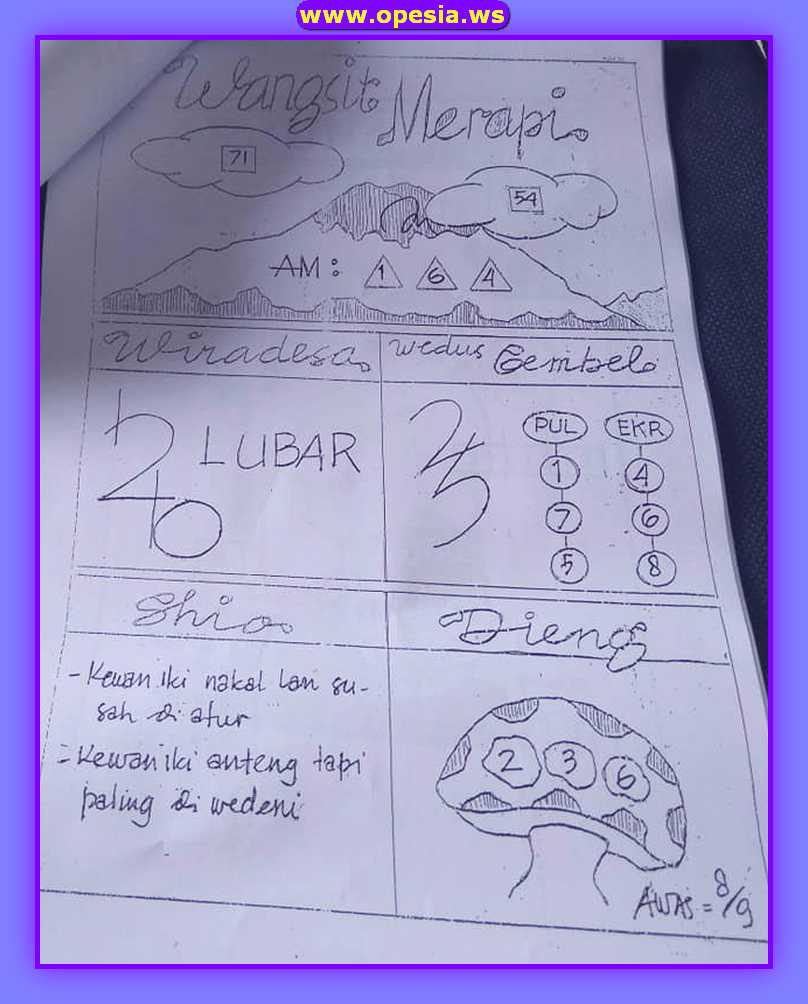 www.opesia.ws
Wangsit
Merapi.
71
54
AM: 1 6 4
Wiradesa.
Wedus Gembel.
LUBAR
PUL EKR
1 4
7 6
5 8
Shio.
Dieng
- Kewan iki nakal lan su-
sah di atur
= Kewan iki anteng tapi
paling di wedeni
2 3 6
AWAS = 8/9